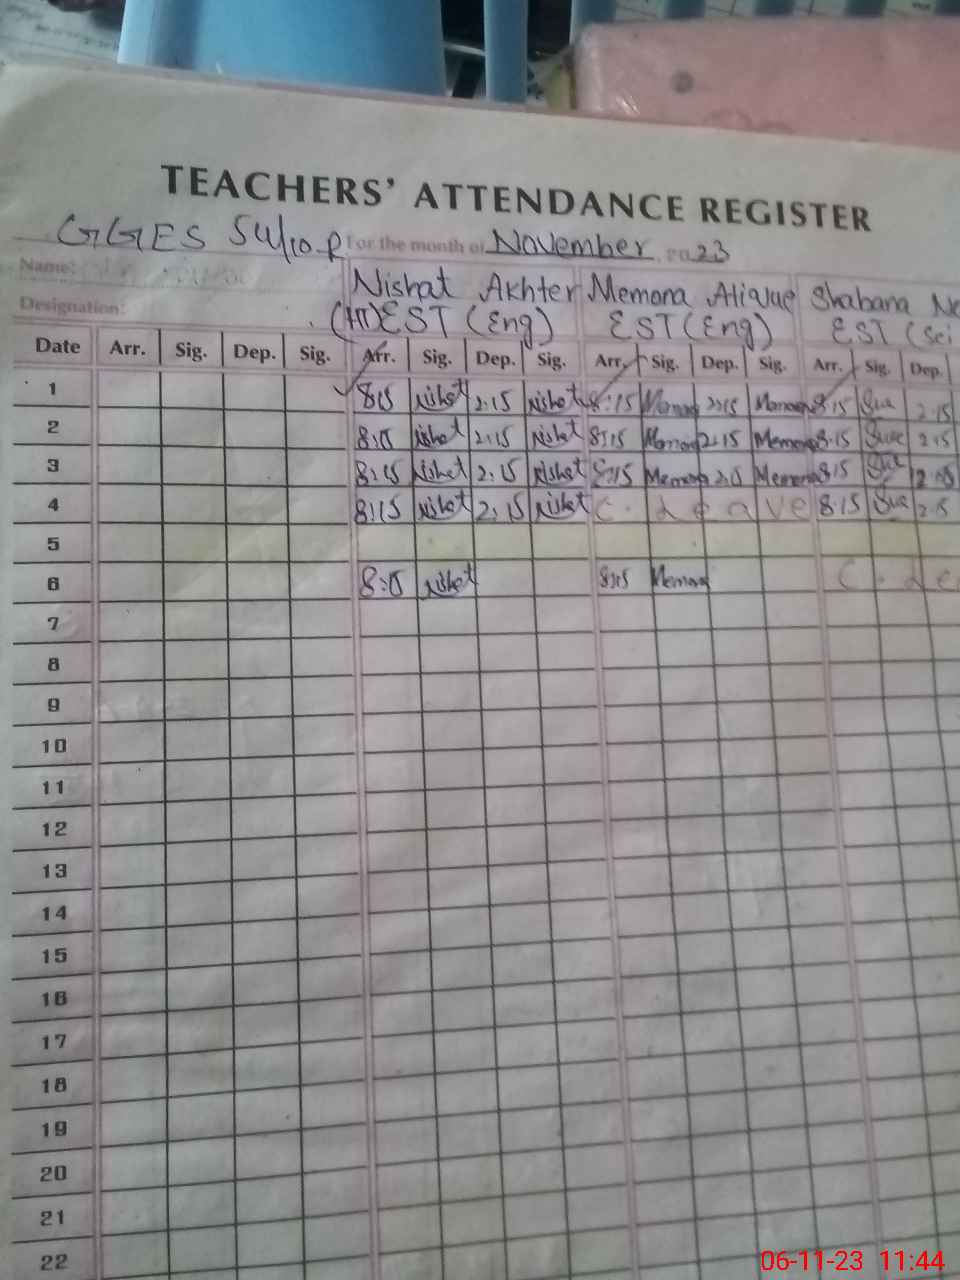 TEACHERS' ATTENDANCE REGISTER
GGES 54/10-R For the month of November, 2023
Name: Nishat Akhter Memona Atique Shabana
Designation: (HT) EST (Eng) EST (Eng) EST (Sci
Date Arr. Sig. Dep. Sig. Arr. Sig. Dep. Sig. Arr. Sig. Dep. Sig. Arr. Sig. Dep.
1 8:15 Nishat 2:15 Nishat 8:15 Memona 2:15 Memona 8:15 2:15
2 8:15 Nishat 2:15 Nishat 8:15 Memona 2:15 Memona 8:15 2:15
3 8:15 Nishat 2:15 Nishat 8:15 Memona 2:15 Memona 8:15 2:15
4 8:15 Nishat 2:15 Nishat C. Leave 8:15 2:15
5
6 8:15 Nishat 8:15 Memona C. Le
7
8
9
10
11
12
13
14
15
16
17
18
19
20
21
22
06-11-23 11:44